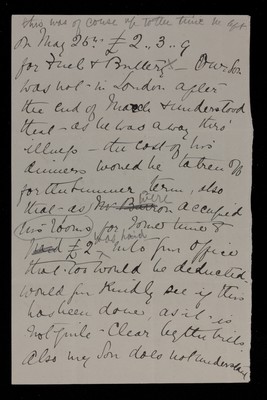 this was of course up to the time he left
On May 26th £2..3..9
for Fuel & Buttery – Our Son
was not in London after
the end of March & understood
that – as he was away thro'
illness – the cost of his
dinners would be taken off
for the Summer term, also
that – as Mr were occupied
his rooms for some time &
had paid £2 into your office
that too would be deducted –
would you kindly see if this
has been done, as it is
not quite clear by the bills
Also my Son does not understand